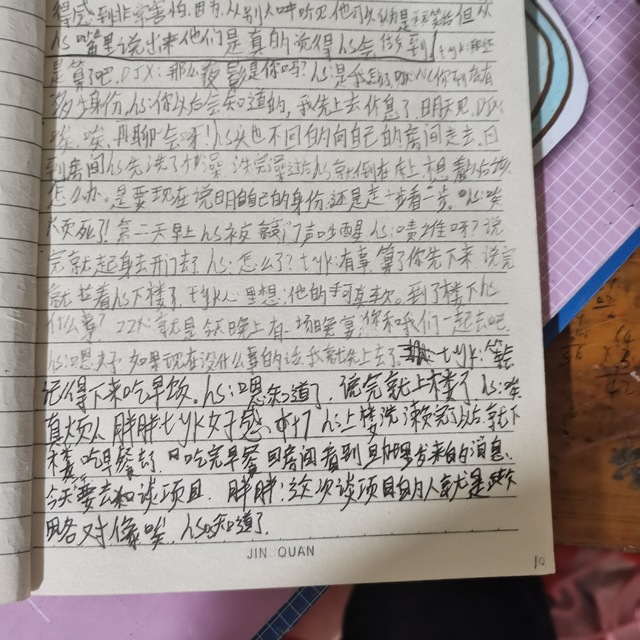 得感到非常害怕.因为.从别人口中听见.他可以认为是 但从
hs嘴里说出来他们是真的觉得hs会做到
是算了吧.DJX:那么夜影是你吗?hs:是我怎么了 你到底有
多少身份.hs:你以后会知道的,我先上去休息了,明天见.DJX
唉、唉、再聊会呀!hs头也不回的向自己的房间走去.回
到房间hs先洗了个澡.洗完澡过后hs就倒在床上想着
怎么办.是要现在说明自己的身份还是走一步看一步。hs:唉
烦死了!第二天早上hs被敲门声吵醒hs:啧谁呀?说
完就起身去开门了hs:怎么了?tyk:有事 算了你先下来 说完
就拉着hs下楼了tyk心里想:他的手 。到了楼下hs
什么事?ZZX:就是今天晚上有一场晚宴,你和我们一起去吧
hs:嗯好.如果现在没什么事的话我就先上去了. tyk:等
记得下来吃早饭。hs:嗯知道了.说完就上楼了hs:唉
真烦人 胖胖tyk好感 hs上楼洗漱完以后就下
楼吃早餐 吃完早餐回房间看到 发来的消息.
今天要去和 谈项目.胖胖:这次谈项目的人就是
略对像唉.hs:知道了.
JIN QUAN
10